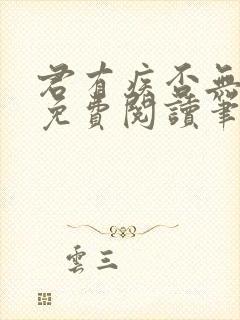 君有疾否無
免費閱讀筆
雲三